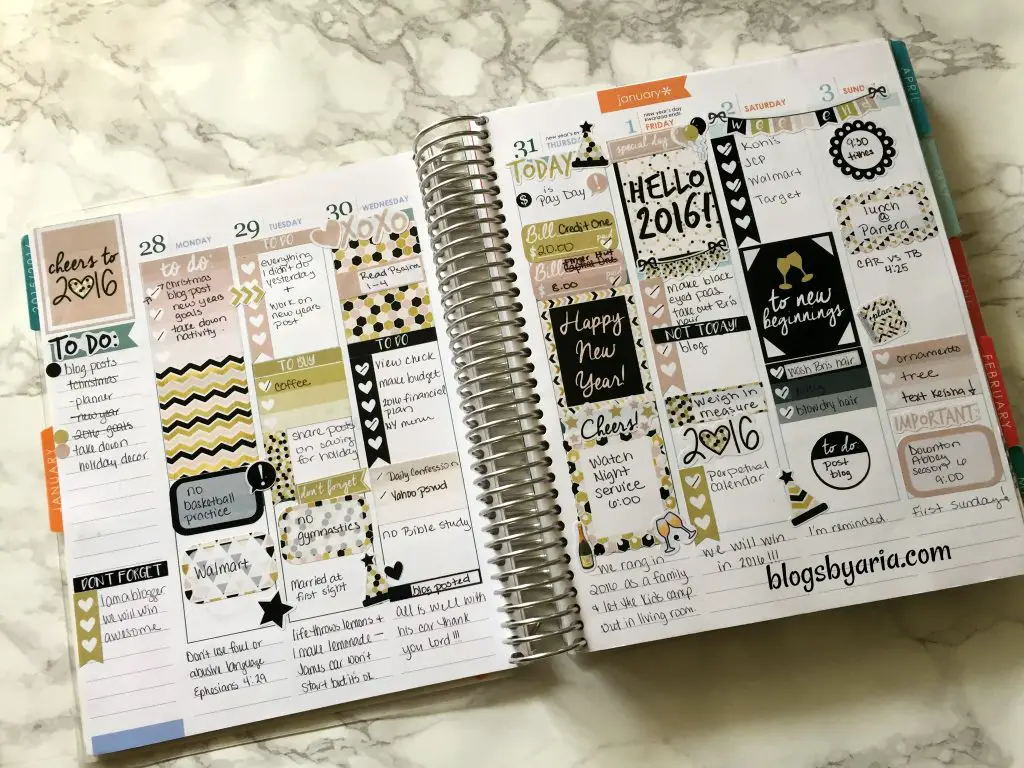 cheers to
2016
TO DO:
blog posts
-christmas
-planner
-new year
-2016 goals
take down
holiday decor
DON'T FORGET
I am a blogger
we will win
awesome
28 MONDAY
to do:
christmas
blog post
new years
goals
take down
nativity
no
basketball
practice
!
Walmart
Don't use foul or
abusive language
Ephesians 4:29
29 TUESDAY
TO DO
everything
I didn't do
yesterday
+
work on
new years
post
TO BUY
coffee
share posts
on saving
for holiday
don't forget
no
gymnastics
Married at
first sight
life throws lemons +
I make lemonade —
James car won't
start but it's ok
30 WEDNESDAY
XOXO
Read Psalm
1-4
TO DO
view check
make budget
2016 financial
plan
NY menu
Daily Confession
Yahoo
no Bible Study
blog posted
all is well with
his car thank
you Lord!!!
january*
31 new year's eve
THURSDAY
TODAY
is
Pay Day
!
$
Bill Credit One
$20.00
Bill
8.00
Happy
New
Year!
Cheers!
Watch
Night
service
6:00
We rang in
2016 as a family
& let the kids camp
out in living room.
1 new year's day
kwanzaa ends
FRIDAY
special day
HELLO
2016!
make black
eyed peas
take out Bri's
hair
NOT TODAY!
blog
Weigh in
measure
2016
Perpetual
calendar
we will win
in 2016!!!
2 SATURDAY
weekend
Kohls
JCP
Walmart
Target
to new
beginnings
Wash Bri's hair
blowdry hair
to do:
post
blog
I'm reminded
3 SUND
9:30
tithes
lunch
@
Panera
CAR vs TB
4:25
plan
ornaments
tree
text Keisha
IMPORTANT
Downton
Abbey
Season 6
9:00
First Sunday!
APRIL
FEBRUARY
JANUARY
blogsbyaria.com